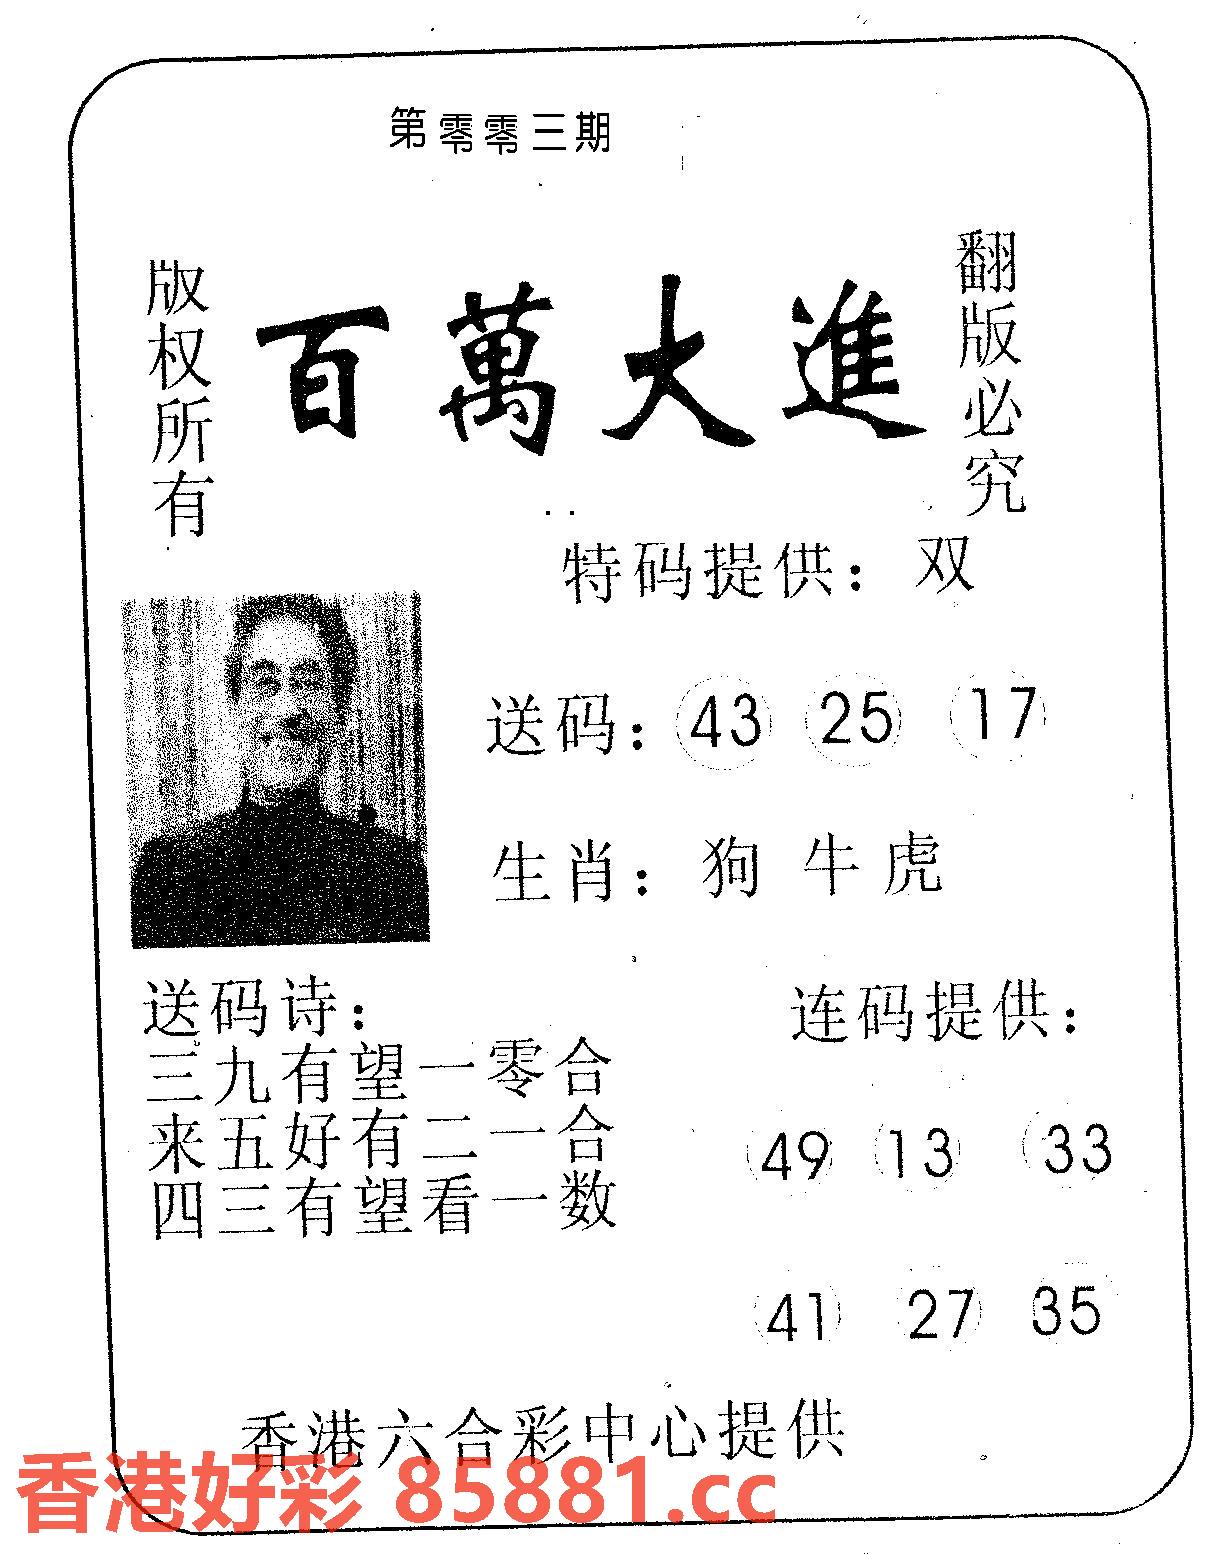 第零零三期
版权所有
百萬大進
翻版必究
特码提供：双
送码：43 25 17
生肖：狗 牛 虎
送码诗：
三九有望一零合
来五好有二一合
四三有望看一数
连码提供：
49 13 33
41 27 35
香港六合彩中心提供
香港好彩 85881.cc